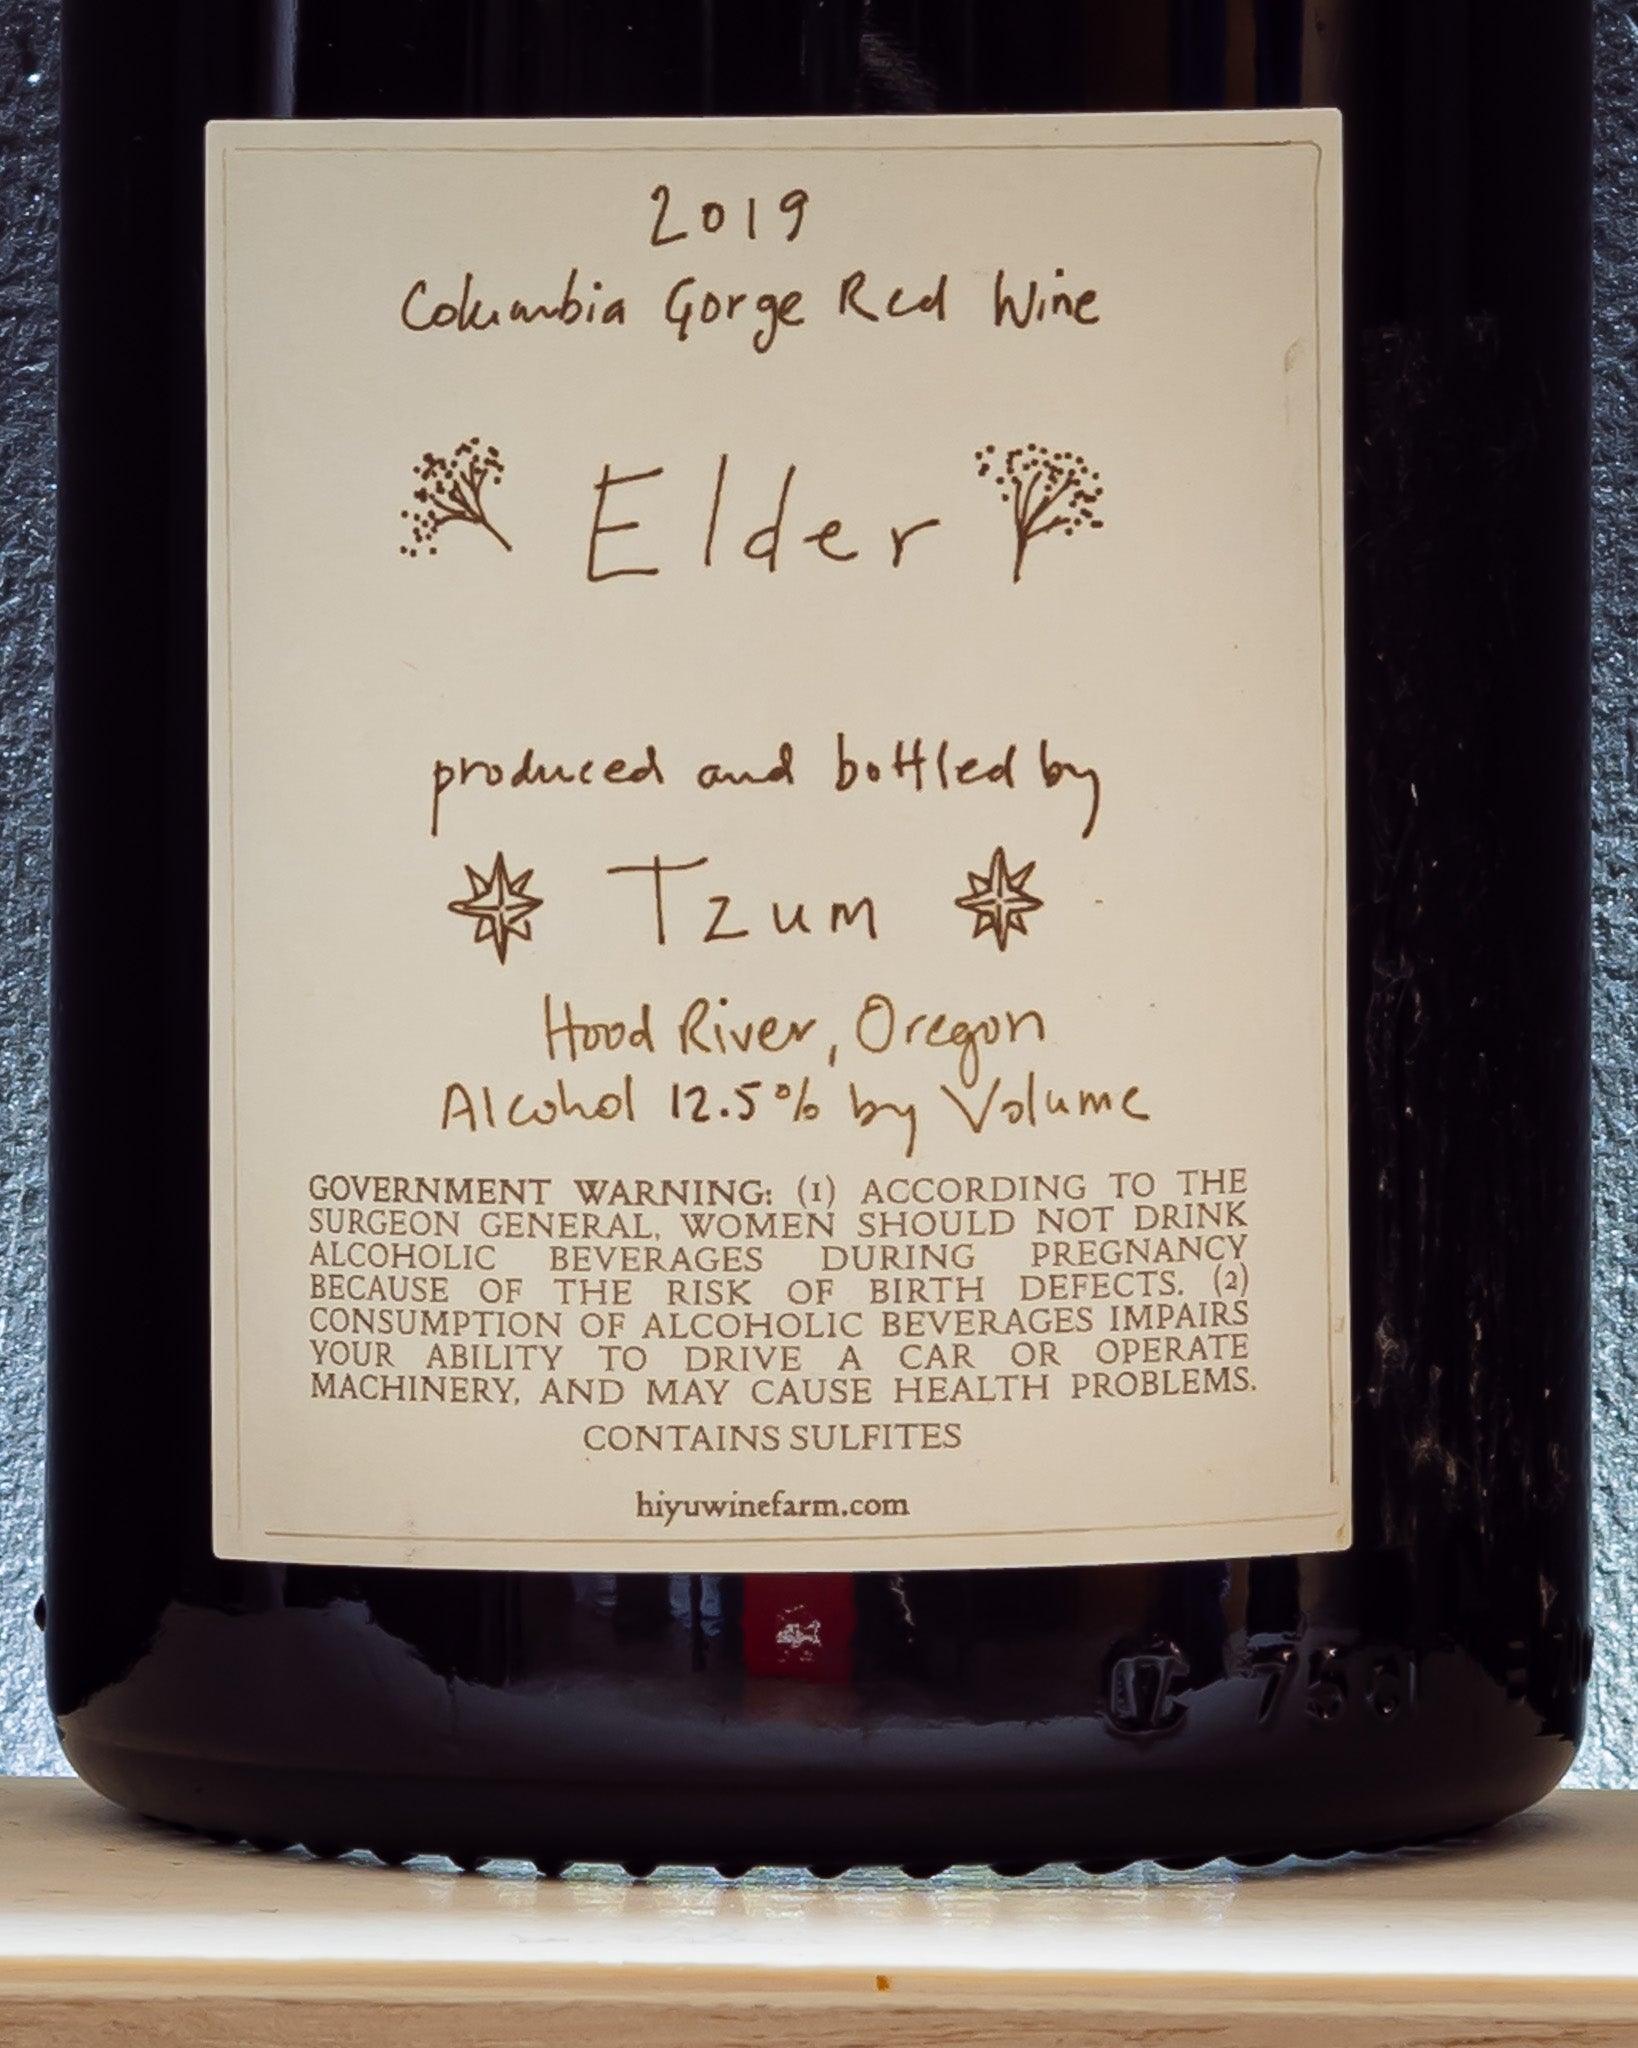 2019
Columbia Gorge Red Wine
Elder
produced and bottled by
Tzum
Hood River, Oregon
Alcohol 12.5% by Volume
GOVERNMENT WARNING: (1) ACCORDING TO THE
SURGEON GENERAL, WOMEN SHOULD NOT DRINK
ALCOHOLIC BEVERAGES DURING PREGNANCY
BECAUSE OF THE RISK OF BIRTH DEFECTS. (2)
CONSUMPTION OF ALCOHOLIC BEVERAGES IMPAIRS
YOUR ABILITY TO DRIVE A CAR OR OPERATE
MACHINERY, AND MAY CAUSE HEALTH PROBLEMS.
CONTAINS SULFITES
hiyuwinefarm.com